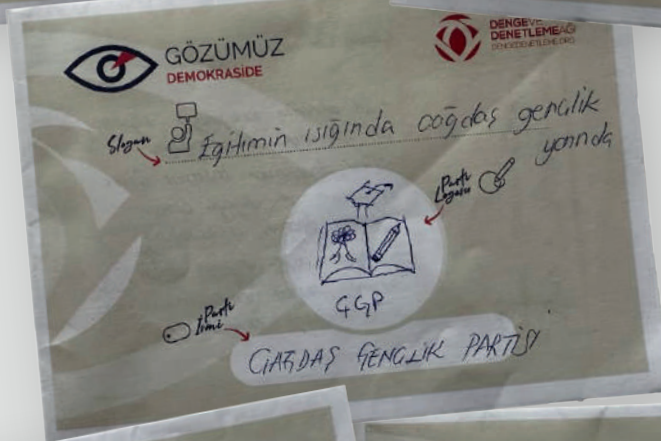 GÖZÜMÜZ
DEMOKRASİDE
DENGE VE
DENETLEME AĞI
DENGEDENETLEME.ORG
Slogan
Eğitimin ışığında çağdaş gençlik
yarında
Parti
Logosu
ÇGP
Parti
İsmi
ÇAĞDAŞ GENÇLİK PARTİSİ